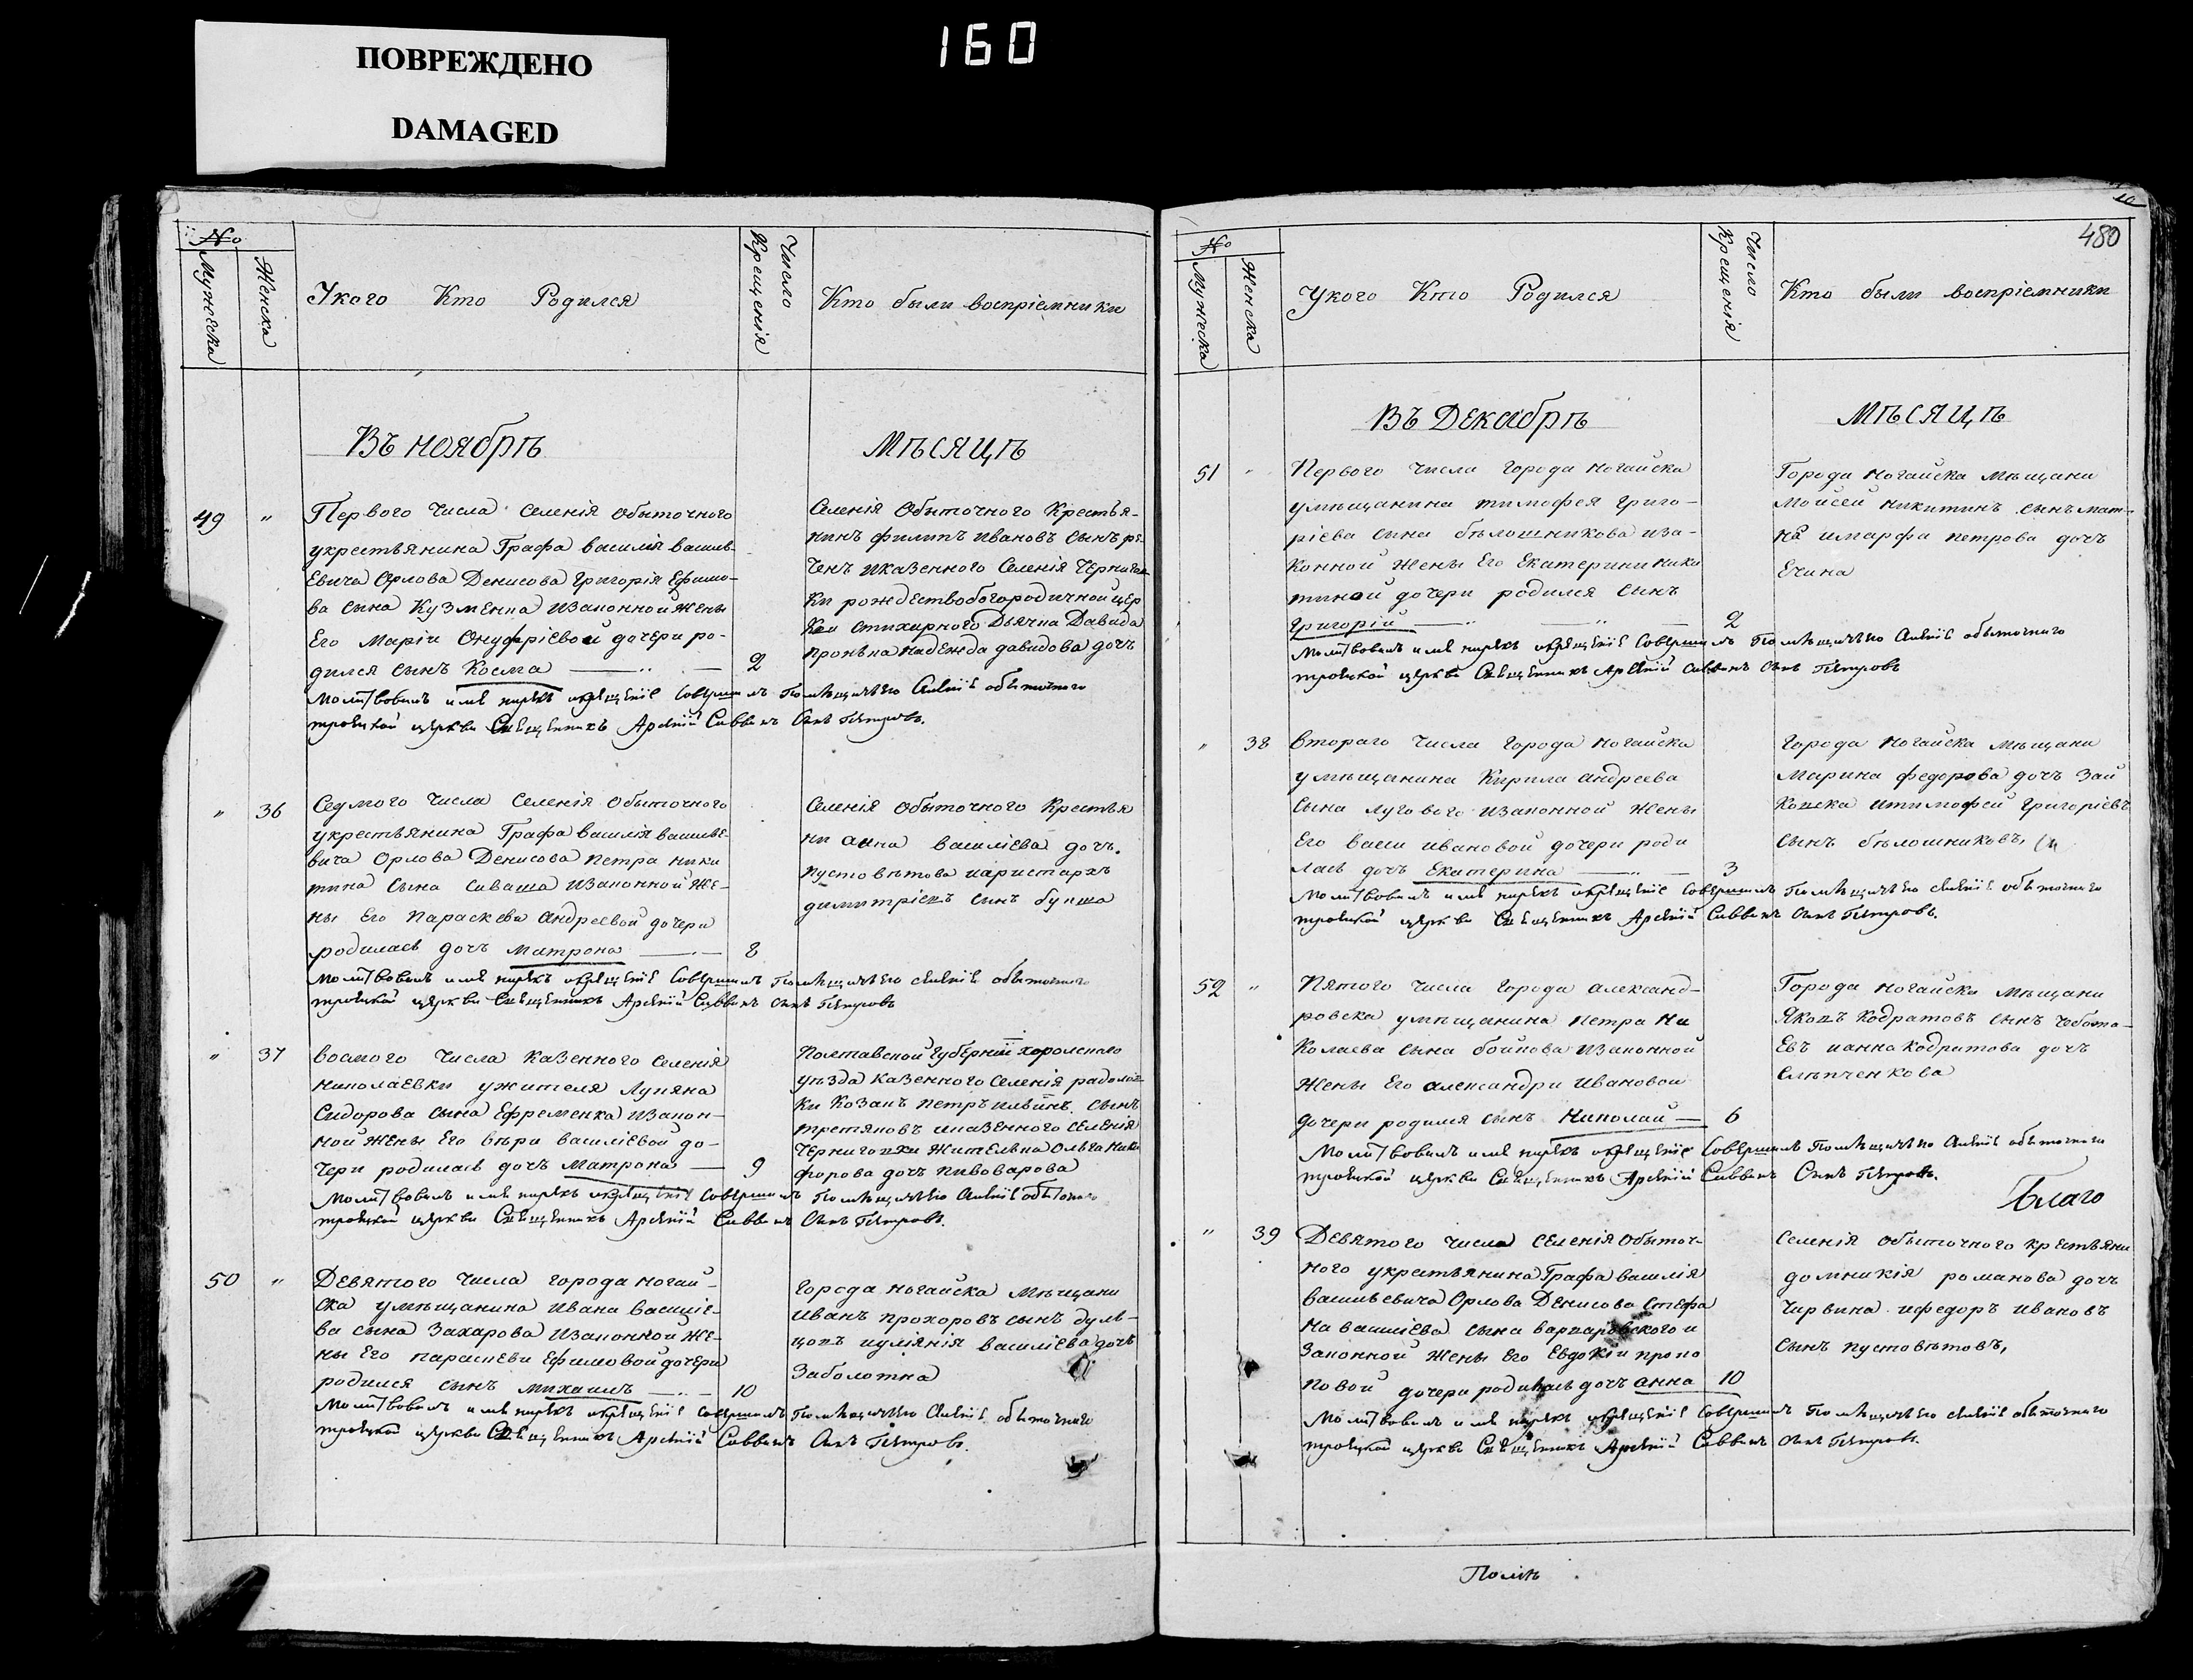 ПОВРЕЖДЕНО
DAMAGED
160
№
Мужеска
Женска
Укого Кто Родился
Число Крещенія
Кто были воспріемники
Въ ноябрѣ
Мѣсяцѣ
49 "
Первого Числа Селенія обыточного
укрестьянина Графа василія василь-
Евича Орлова Денисова Григорія Ефимо-
ва сына Кузменка Изаконной жены
Его Маріи Онуфріевой дочери ро-
дился сынъ Косма — 2
Селенія Обыточного Крестья-
нинъ филипъ ивановъ сынъ
Казенного Селенія
ки рождествобогородичной цер
кви стихарного Дьячка Давида
надежда давидова дочь
Молитвовалъ имя нарекъ икрещеніе Совершилъ Помѣщичьего Селенія обыточного
троицкой церкви Священникъ Арсеній Саввинъ Сынъ Петровъ.
" 36
Седмого Числа Селенія Обыточного
укрестьянина Графа василія василье-
вича Орлова Денисова петра ники
тина сына сиваша изаконной же-
ны Его параскеви андреевой дочери
родилась дочь матрона — 8
Селенія обыточного Крестья
ни анна василіева дочь.
пустовѣтова иаристархъ
димитріевъ сынъ
Молитвовалъ имя нарекъ икрещеніе Совершилъ Помѣщичьего селенія обыточного
троицкой церкви Священникъ Арсеній Саввинъ сынъ Петровъ
" 37
восмого числа казенного селенія
николаевки ужителя Лукяна
Сидорова сына Ефременка Изакон-
ной жены Его вѣри василіевой до-
чери родилась дочь матрона — 9
Полтавской Губерніи хоролского
уѣзда казенного селенія
ки козакъ петръ ильинъ сынъ
третяковъ иказенного селенія
Черниговки жителька Ольга ники
форова дочь пивоварова
Молитвовалъ имя нарекъ икрещеніе Совершилъ Помѣщичьего Селенія обыточного
троицкой церкви Священникъ Арсеній Саввинъ Сынъ Петровъ.
50 "
Девятого числа города ногай-
ска умѣщанина ивана василіе-
ва сына Захарова изаконной же-
ны Его параскеви Ефимовой дочери
родился сынъ михаилъ — 10
города ногайска мѣщани
иванъ прохоровъ сынъ
иуліянія василіева дочь
Заболотна
Молитвовалъ имя нарекъ икрещеніе Совершилъ Помѣщичьего Селенія обыточного
троицкой церкви Священникъ Арсеній Саввинъ Сынъ Петровъ.
480
№
Мужеска
Женска
Укого Кто Родился
Число Крещенія
Кто были воспріемники
Въ Декабрѣ
Мѣсяцѣ
51 "
Первого числа города ногайска
умѣщанина тимофея григо-
ріева сына бѣлошникова иза-
конной жены Его Екатерини ники
тиной дочери родился сынъ
григорій — 2
Города ногайска мѣщани
Мойсей никитинъ сынъ
имарфа петрова дочь
Молитвовалъ имя нарекъ икрещеніе Совершилъ Помѣщичьего Селенія обыточного
троицкой церкви Священникъ Арсеній Саввинъ сынъ Петровъ
" 38
втораго числа города ногайска
умѣщанина Кирила андреева
сына лугового изаконной жены
Его васи ивановой дочери роди
лась дочь Екатерина — 3
города ногайска мѣщани
марина федорова дочь
итимофей григоріевъ
сынъ бѣлошниковъ,
Молитвовалъ имя нарекъ икрещеніе Совершилъ Помѣщичьего селенія обыточного
троицкой церкви Священникъ Арсеній Саввинъ Сынъ Петровъ.
52 "
Пятого числа города александ-
ровска умѣщанина петра ни
колаева сына бойкова изаконной
жены Его александри ивановой
дочери родился сынъ Николай — 6
Города ногайска мѣщани
Яковъ Кодратовъ сынъ Чебота-
евъ ианна кодратова дочь
слѣпченкова
Молитвовалъ имя нарекъ икрещеніе Совершилъ Помѣщичьего Селенія обыточного
троицкой церкви Священникъ Арсеній Саввинъ Сынъ Петровъ.
Благо
" 39
Девятого числа селенія обыточ-
ного укрестьянина Графа василія
васильевича Орлова Денисова стефа
на василіева сына варваровского и
законной жены Его Евдокіи проко
повой дочери родилась дочь анна 10
селенія обыточного крестьяни
домникія романова дочь
ифедоръ ивановъ
сынъ пустовѣтовъ,
Молитвовалъ имя нарекъ икрещеніе Совершилъ Помѣщичьего селенія обыточного
троицкой церкви Священникъ Арсеній Саввинъ сынъ Петровъ.